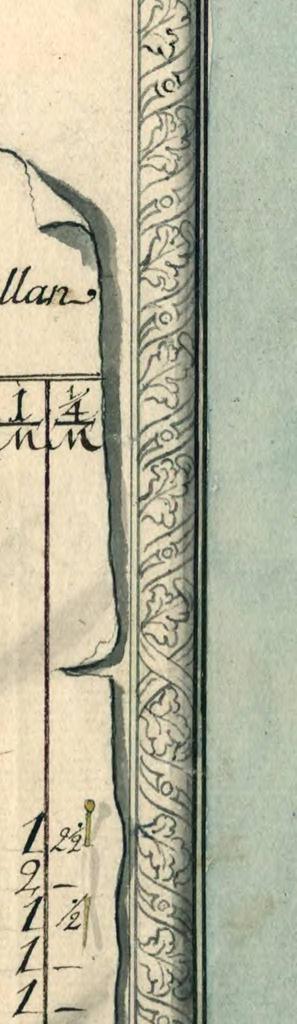 llan
1 1/4
m m
1 2½
2 –
1 ½
1 –
1 –